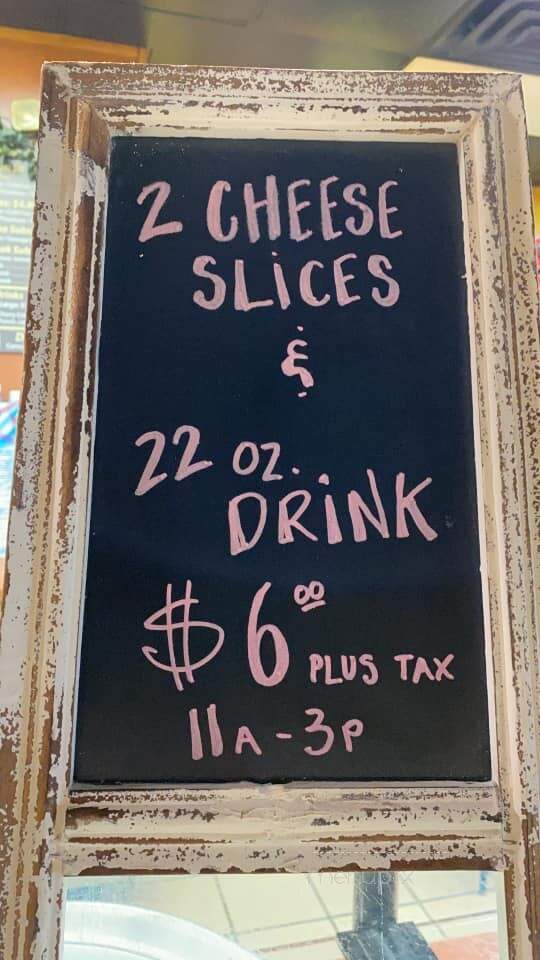 2 CHEESE
SLICES
&
22 OZ.
DRINK
$6.00
PLUS TAX
11A-3P